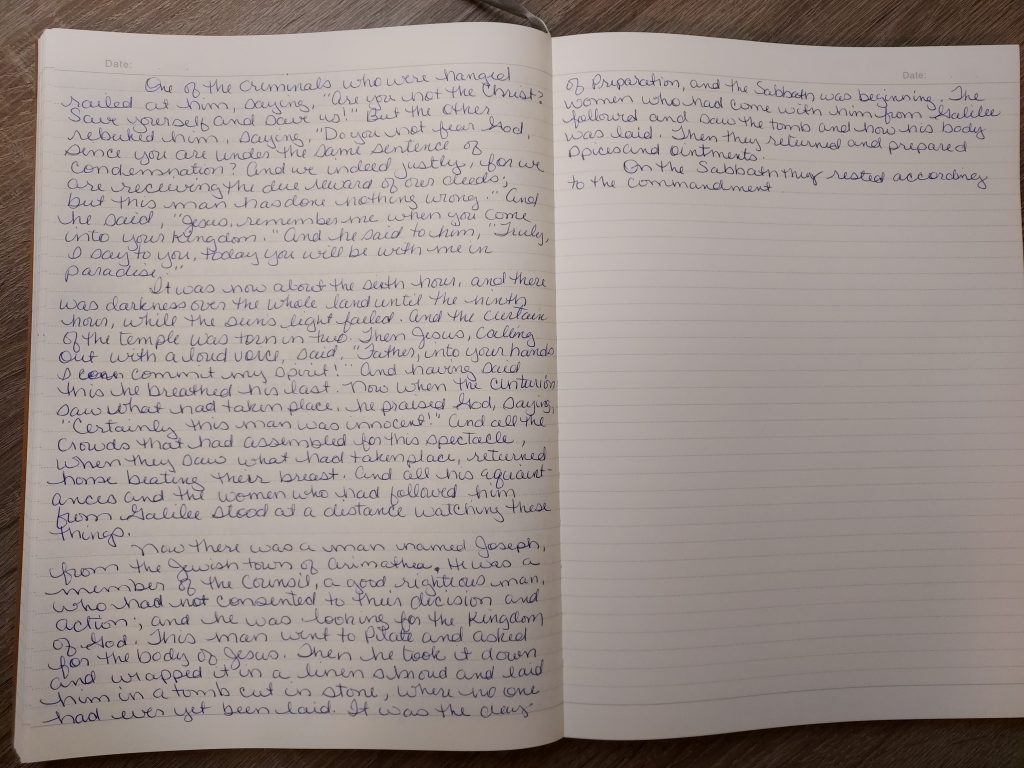 Date:
One of the criminals who were hanged
railed at him, saying, "Are you not the Christ?
Save yourself and save us!" But the other
rebuked him, saying, "Do you not fear God,
since you are under the same sentence of
condemnation? And we indeed justly, for we
are receiving the due reward of our deeds;
but this man has done nothing wrong." And
he said, "Jesus, remember me when you come
into your kingdom." And he said to him, "Truly,
I say to you, today you will be with me in
paradise."
It was now about the sixth hour, and there
was darkness over the whole land until the ninth
hour, while the sun's light failed. And the curtain
of the temple was torn in two. Then Jesus, calling
out with a loud voice, said, "Father, into your hands
I commit my spirit!" And having said
this he breathed his last. Now when the centurion
saw what had taken place, he praised God, saying,
"Certainly this man was innocent!" And all the
crowds that had assembled for this spectacle,
when they saw what had taken place, returned
home beating their breast. And all his aquaint-
ances and the women who had followed him
from Galilee stood at a distance watching these
things.
Now there was a man named Joseph,
from the Jewish town of Arimathea. He was a
member of the Council, a good rightious man,
who had not consented to their decision and
action; and he was looking for the Kingdom
of God. This man went to Pilate and asked
for the body of Jesus. Then he took it down
and wrapped it in a linen shroud and laid
him in a tomb cut in stone, where no one
had ever yet been laid. It was the day
Date:
of Preparation, and the Sabbath was beginning. The
women who had come with him from Galilee
followed and saw the tomb and how his body
was laid. Then they returned and prepared
spices and ointments.
On the Sabbath they rested according
to the commandment